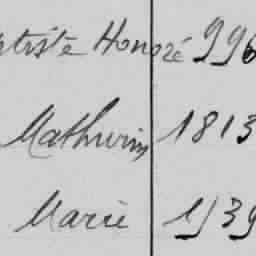 tiste Honoré 996
Mathurin 1813
Marie 1939